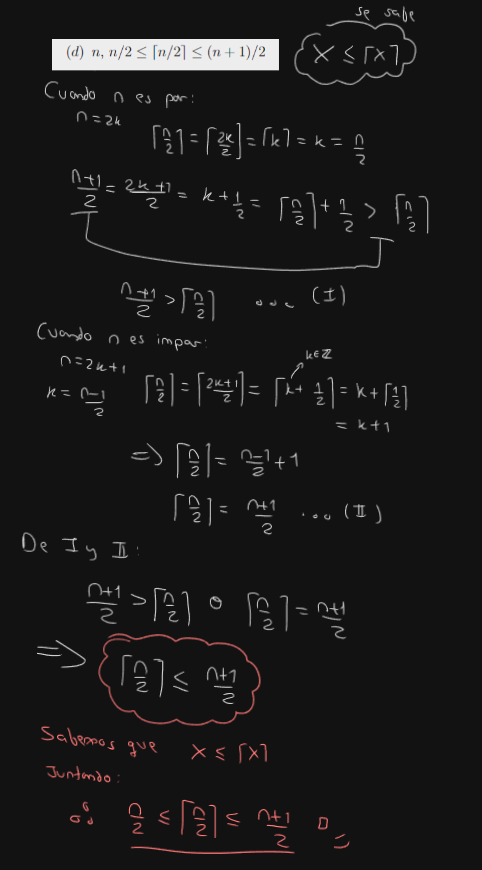 se sabe
(d) n, n/2 ≤ ⌈n/2⌉ ≤ (n + 1)/2
x ≤ ⌈x⌉
Cuando n es par:
n = 2k
⌈n/2⌉ = ⌈2k/2⌉ = ⌈k⌉ = k = n/2
n+1/2 = 2k+1/2 = k + 1/2 = ⌈n/2⌉ + 1/2 > ⌈n/2⌉
n+1/2 > ⌈n/2⌉ ... (I)
Cuando n es impar:
k∈ℤ
n = 2k+1
k = n-1/2
⌈n/2⌉ = ⌈2k+1/2⌉ = ⌈k + 1/2⌉ = k + ⌈1/2⌉
= k+1
⇒ ⌈n/2⌉ = n-1/2 + 1
⌈n/2⌉ = n+1/2 ... (II)
De I y II:
n+1/2 > ⌈n/2⌉ o ⌈n/2⌉ = n+1/2
⇒ ⌈n/2⌉ ≤ n+1/2
Sabemos que x ≤ ⌈x⌉
Juntando:
∴ n/2 ≤ ⌈n/2⌉ ≤ n+1/2 □